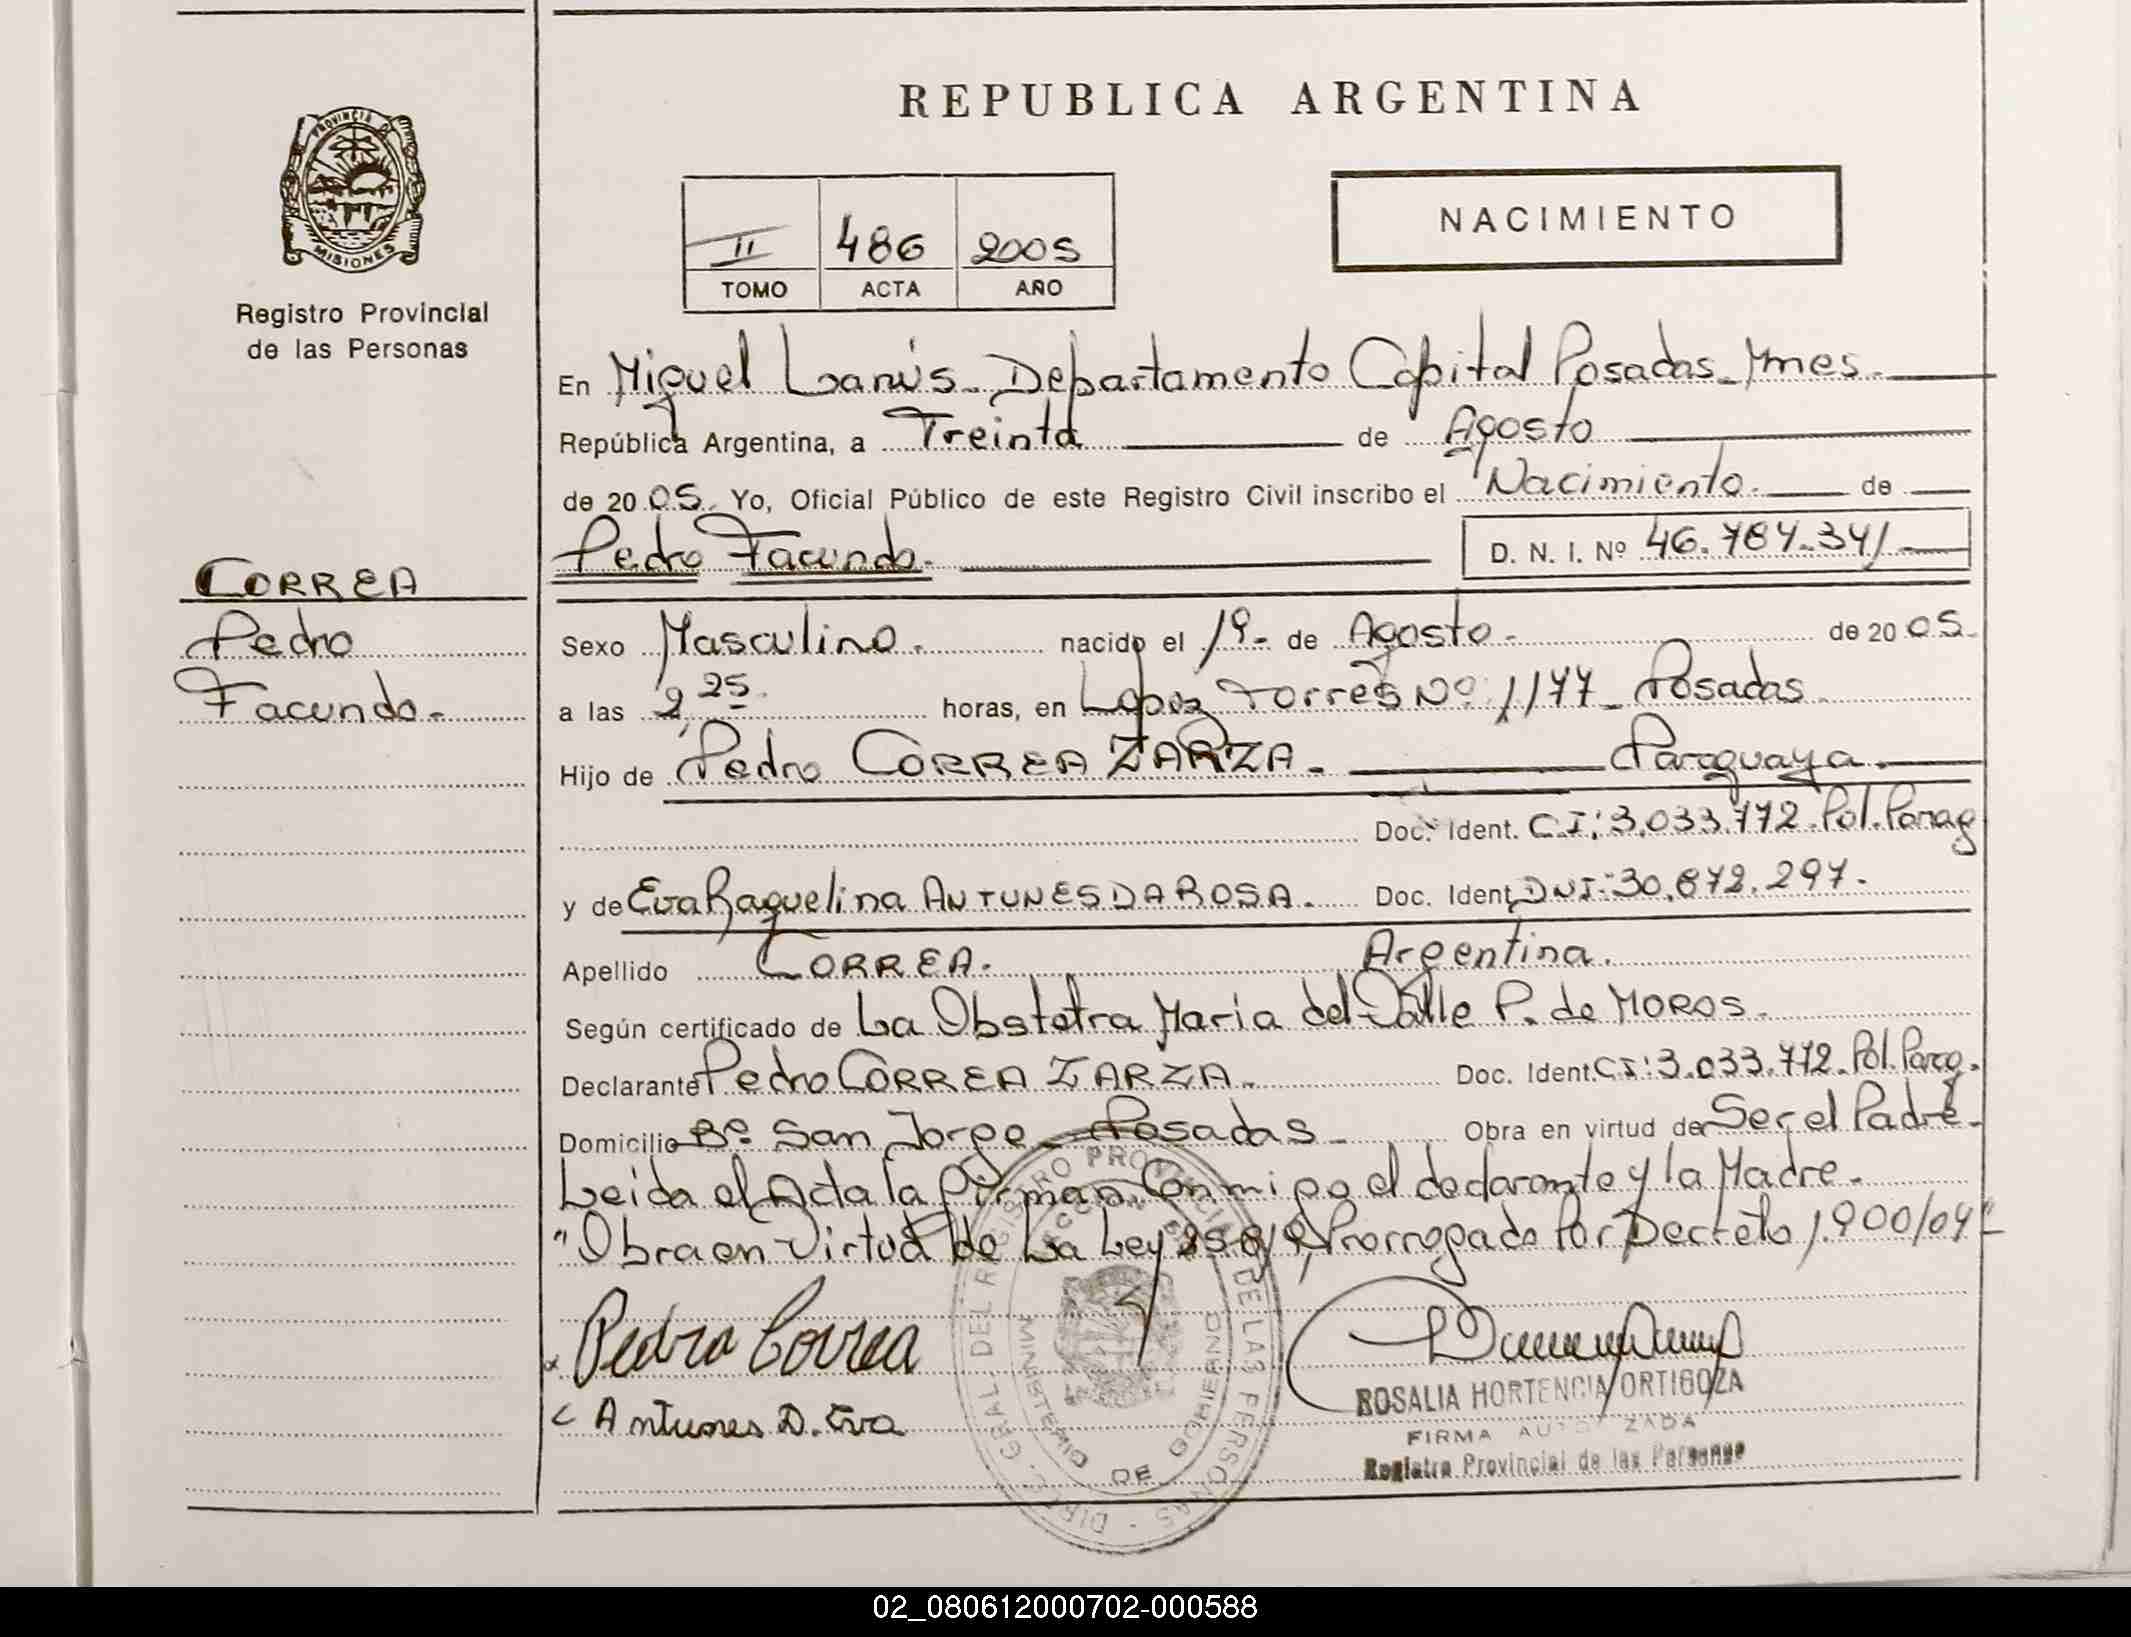 REPUBLICA ARGENTINA
PROVINCIA DE
MISIONES
Registro Provincial
de las Personas
II 486 2005
TOMO ACTA AÑO
NACIMIENTO
En Miguel Lanús. Departamento Capital Posadas. Mnes.
República Argentina, a Treinta de Agosto
de 20 05. Yo, Oficial Público de este Registro Civil inscribo el Nacimiento. de
Pedro Facundo. D. N. I. Nº 46.784.341
CORREA
Pedro
Facundo.-
Sexo Masculino. nacido el 1º- de Agosto. de 20 05.
a las 2,25 horas, en López Torres Nº 1177 - Posadas
Hijo de Pedro CORREA ZARZA. Paraguaya.
Doc. Ident. C.I: 3.033.772. Pol. Parag
y de Eva Raquelina ANTUNES DA ROSA. Doc. Ident. DNI: 30.872.297.
Apellido CORREA. Argentina.
Según certificado de La Obstetra Maria del Valle P. de MOROS.
Declarante Pedro CORREA ZARZA. Doc. Ident. CI: 3.033.772. Pol. Parag.
Domicilio Bº San Jorge - Posadas - Obra en virtud de Ser el Padre.
Leida el Acta la firman Conmigo el declarante y la Madre.
"Obra en Virtud de La Ley Prorrogado Por Decreto 1.900/04"
Pedro Correa
Antunes D. Eva
ROSALIA HORTENCIA ORTIGOZA
FIRMA AUTORIZADA
Registro Provincial de las Personas
DIREC. GRAL. DEL REGISTRO PROVINCIAL DE LAS PERSONAS
MINISTERIO DE GOBIERNO
02_080612000702-000588